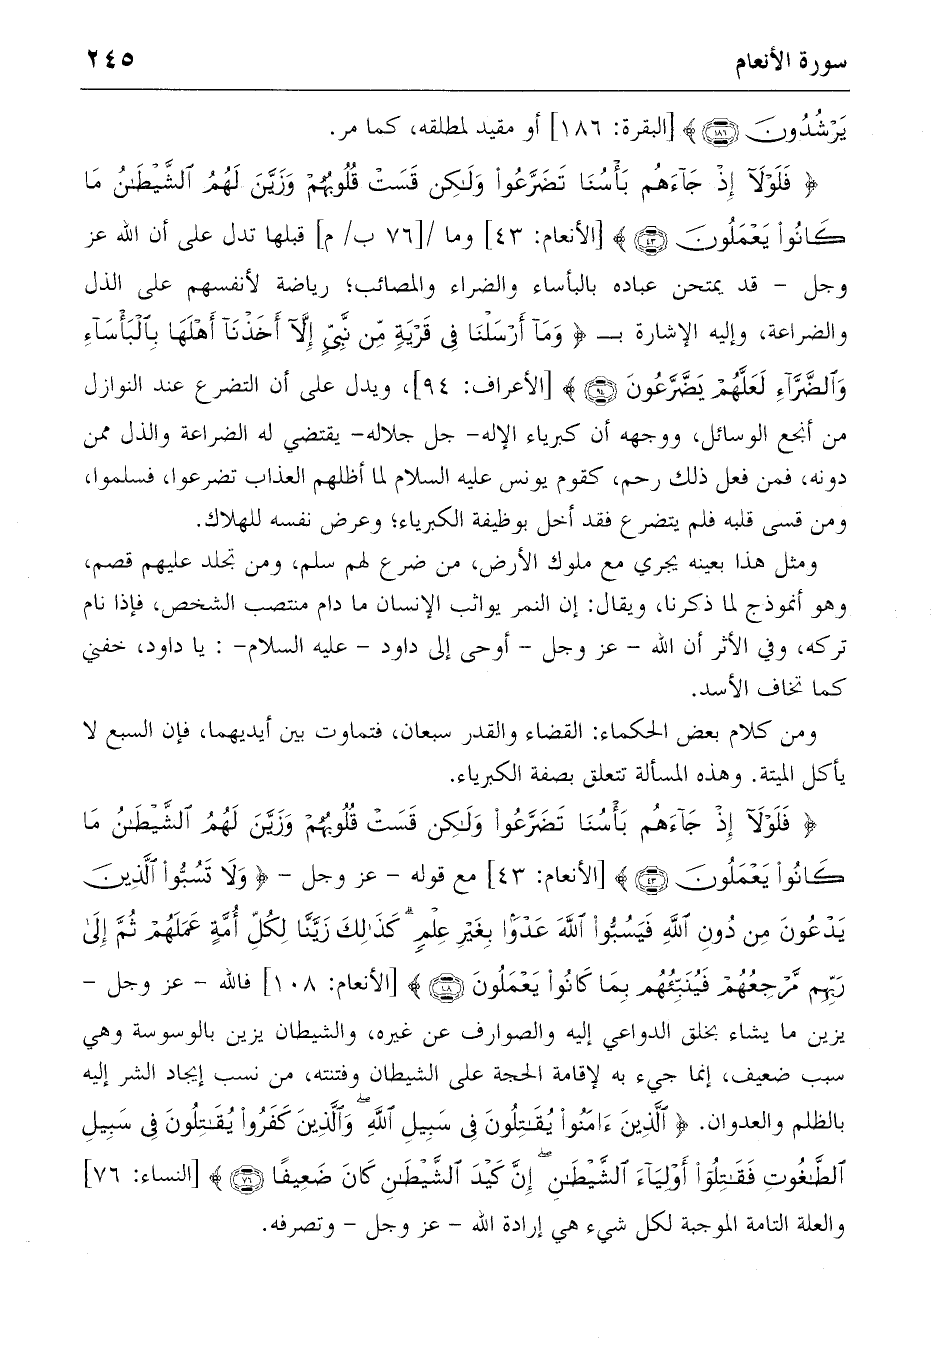 سورة الأنعام ٢٤٥
يَرْشُدُونَ ﴿١٨٦﴾ [البقرة: ١٨٦] أو مقيد لمطلقه، كما مر.
﴿ فَلَوْلَآ إِذْ جَآءَهُم بَأْسُنَا تَضَرَّعُوا۟ وَلَٰكِن قَسَتْ قُلُوبُهُمْ وَزَيَّنَ لَهُمُ ٱلشَّيْطَٰنُ مَا
كَانُوا۟ يَعْمَلُونَ ٤٣ ﴾ [الأنعام: ٤٣] وما /[٧٦ ب/ م] قبلها تدل على أن الله عز
وجل – قد يمتحن عباده بالبأساء والضراء والمصائب؛ رياضة لأنفسهم على الذل
والضراعة، وإليه الإشارة بـ ﴿ وَمَآ أَرْسَلْنَا فِى قَرْيَةٍ مِّن نَّبِىٍّ إِلَّآ أَخَذْنَآ أَهْلَهَا بِٱلْبَأْسَآءِ
وَٱلضَّرَّآءِ لَعَلَّهُمْ يَضَّرَّعُونَ ٩٤ ﴾ [الأعراف: ٩٤]، ويدل على أن التضرع عند النوازل
من أنجع الوسائل، ووجهه أن كبرياء الإله- جل جلاله- يقتضي له الضراعة والذل ممن
دونه، فمن فعل ذلك رحم، كقوم يونس عليه السلام لما أظلهم العذاب تضرعوا، فسلموا،
ومن قسى قلبه فلم يتضرع فقد أخل بوظيفة الكبرياء؛ وعرض نفسه للهلاك.
ومثل هذا بعينه يجري مع ملوك الأرض، من ضرع لهم سلم، ومن تجلد عليهم قصم،
وهو أنموذج لما ذكرنا، ويقال: إن النمر يواثب الإنسان ما دام منتصب الشخص، فإذا نام
تركه، وفي الأثر أن الله – عز وجل – أوحى إلى داود – عليه السلام- : يا داود، خفني
كما تخاف الأسد.
ومن كلام بعض الحكماء: القضاء والقدر سبعان، فتماوت بين أيديهما، فإن السبع لا
يأكل الميتة. وهذه المسألة تتعلق بصفة الكبرياء.
﴿ فَلَوْلَآ إِذْ جَآءَهُم بَأْسُنَا تَضَرَّعُوا۟ وَلَٰكِن قَسَتْ قُلُوبُهُمْ وَزَيَّنَ لَهُمُ ٱلشَّيْطَٰنُ مَا
كَانُوا۟ يَعْمَلُونَ ٤٣ ﴾ [الأنعام: ٤٣] مع قوله – عز وجل – ﴿ وَلَا تَسُبُّوا۟ ٱلَّذِينَ
يَدْعُونَ مِن دُونِ ٱللَّهِ فَيَسُبُّوا۟ ٱللَّهَ عَدْوًۢا بِغَيْرِ عِلْمٍۢ ۗ كَذَٰلِكَ زَيَّنَّا لِكُلِّ أُمَّةٍ عَمَلَهُمْ ثُمَّ إِلَىٰ
رَبِّهِم مَّرْجِعُهُمْ فَيُنَبِّئُهُم بِمَا كَانُوا۟ يَعْمَلُونَ ١٠٨ ﴾ [الأنعام: ١٠٨] فالله – عز وجل –
يزين ما يشاء بخلق الدواعي إليه والصوارف عن غيره، والشيطان يزين بالوسوسة وهي
سبب ضعيف، إنما جيء به لإقامة الحجة على الشيطان وفتنته، من نسب إيجاد الشر إليه
بالظلم والعدوان. ﴿ ٱلَّذِينَ ءَامَنُوا۟ يُقَٰتِلُونَ فِى سَبِيلِ ٱللَّهِ ۖ وَٱلَّذِينَ كَفَرُوا۟ يُقَٰتِلُونَ فِى سَبِيلِ
ٱلطَّٰغُوتِ فَقَٰتِلُوٓا۟ أَوْلِيَآءَ ٱلشَّيْطَٰنِ ۖ إِنَّ كَيْدَ ٱلشَّيْطَٰنِ كَانَ ضَعِيفًا ٧٦ ﴾ [النساء: ٧٦]
والعلة التامة الموجبة لكل شيء هي إرادة الله – عز وجل – وتصرفه.